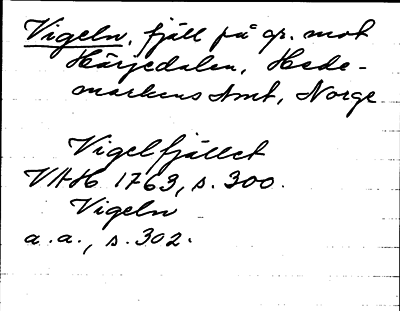 Vigeln, fjäll på gr. mot
Härjedalen, Hede-
markens Amt, Norge
Vigelfjället
VAH 1763, s. 300.
Vigeln
a. a., s. 302.